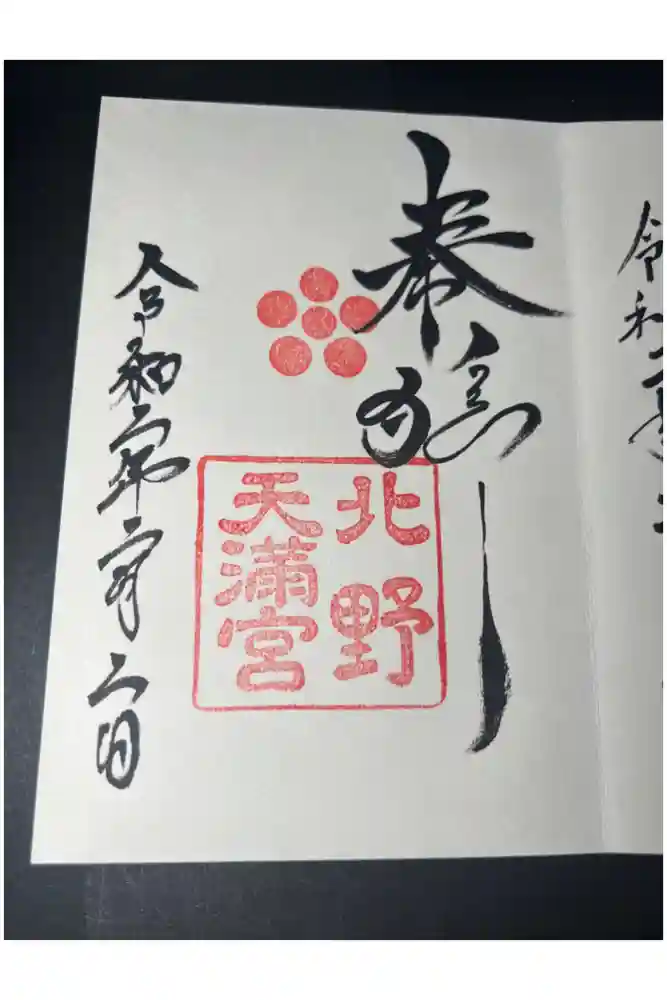 令和二
奉拝
北野
天満宮
令和二年二月二日